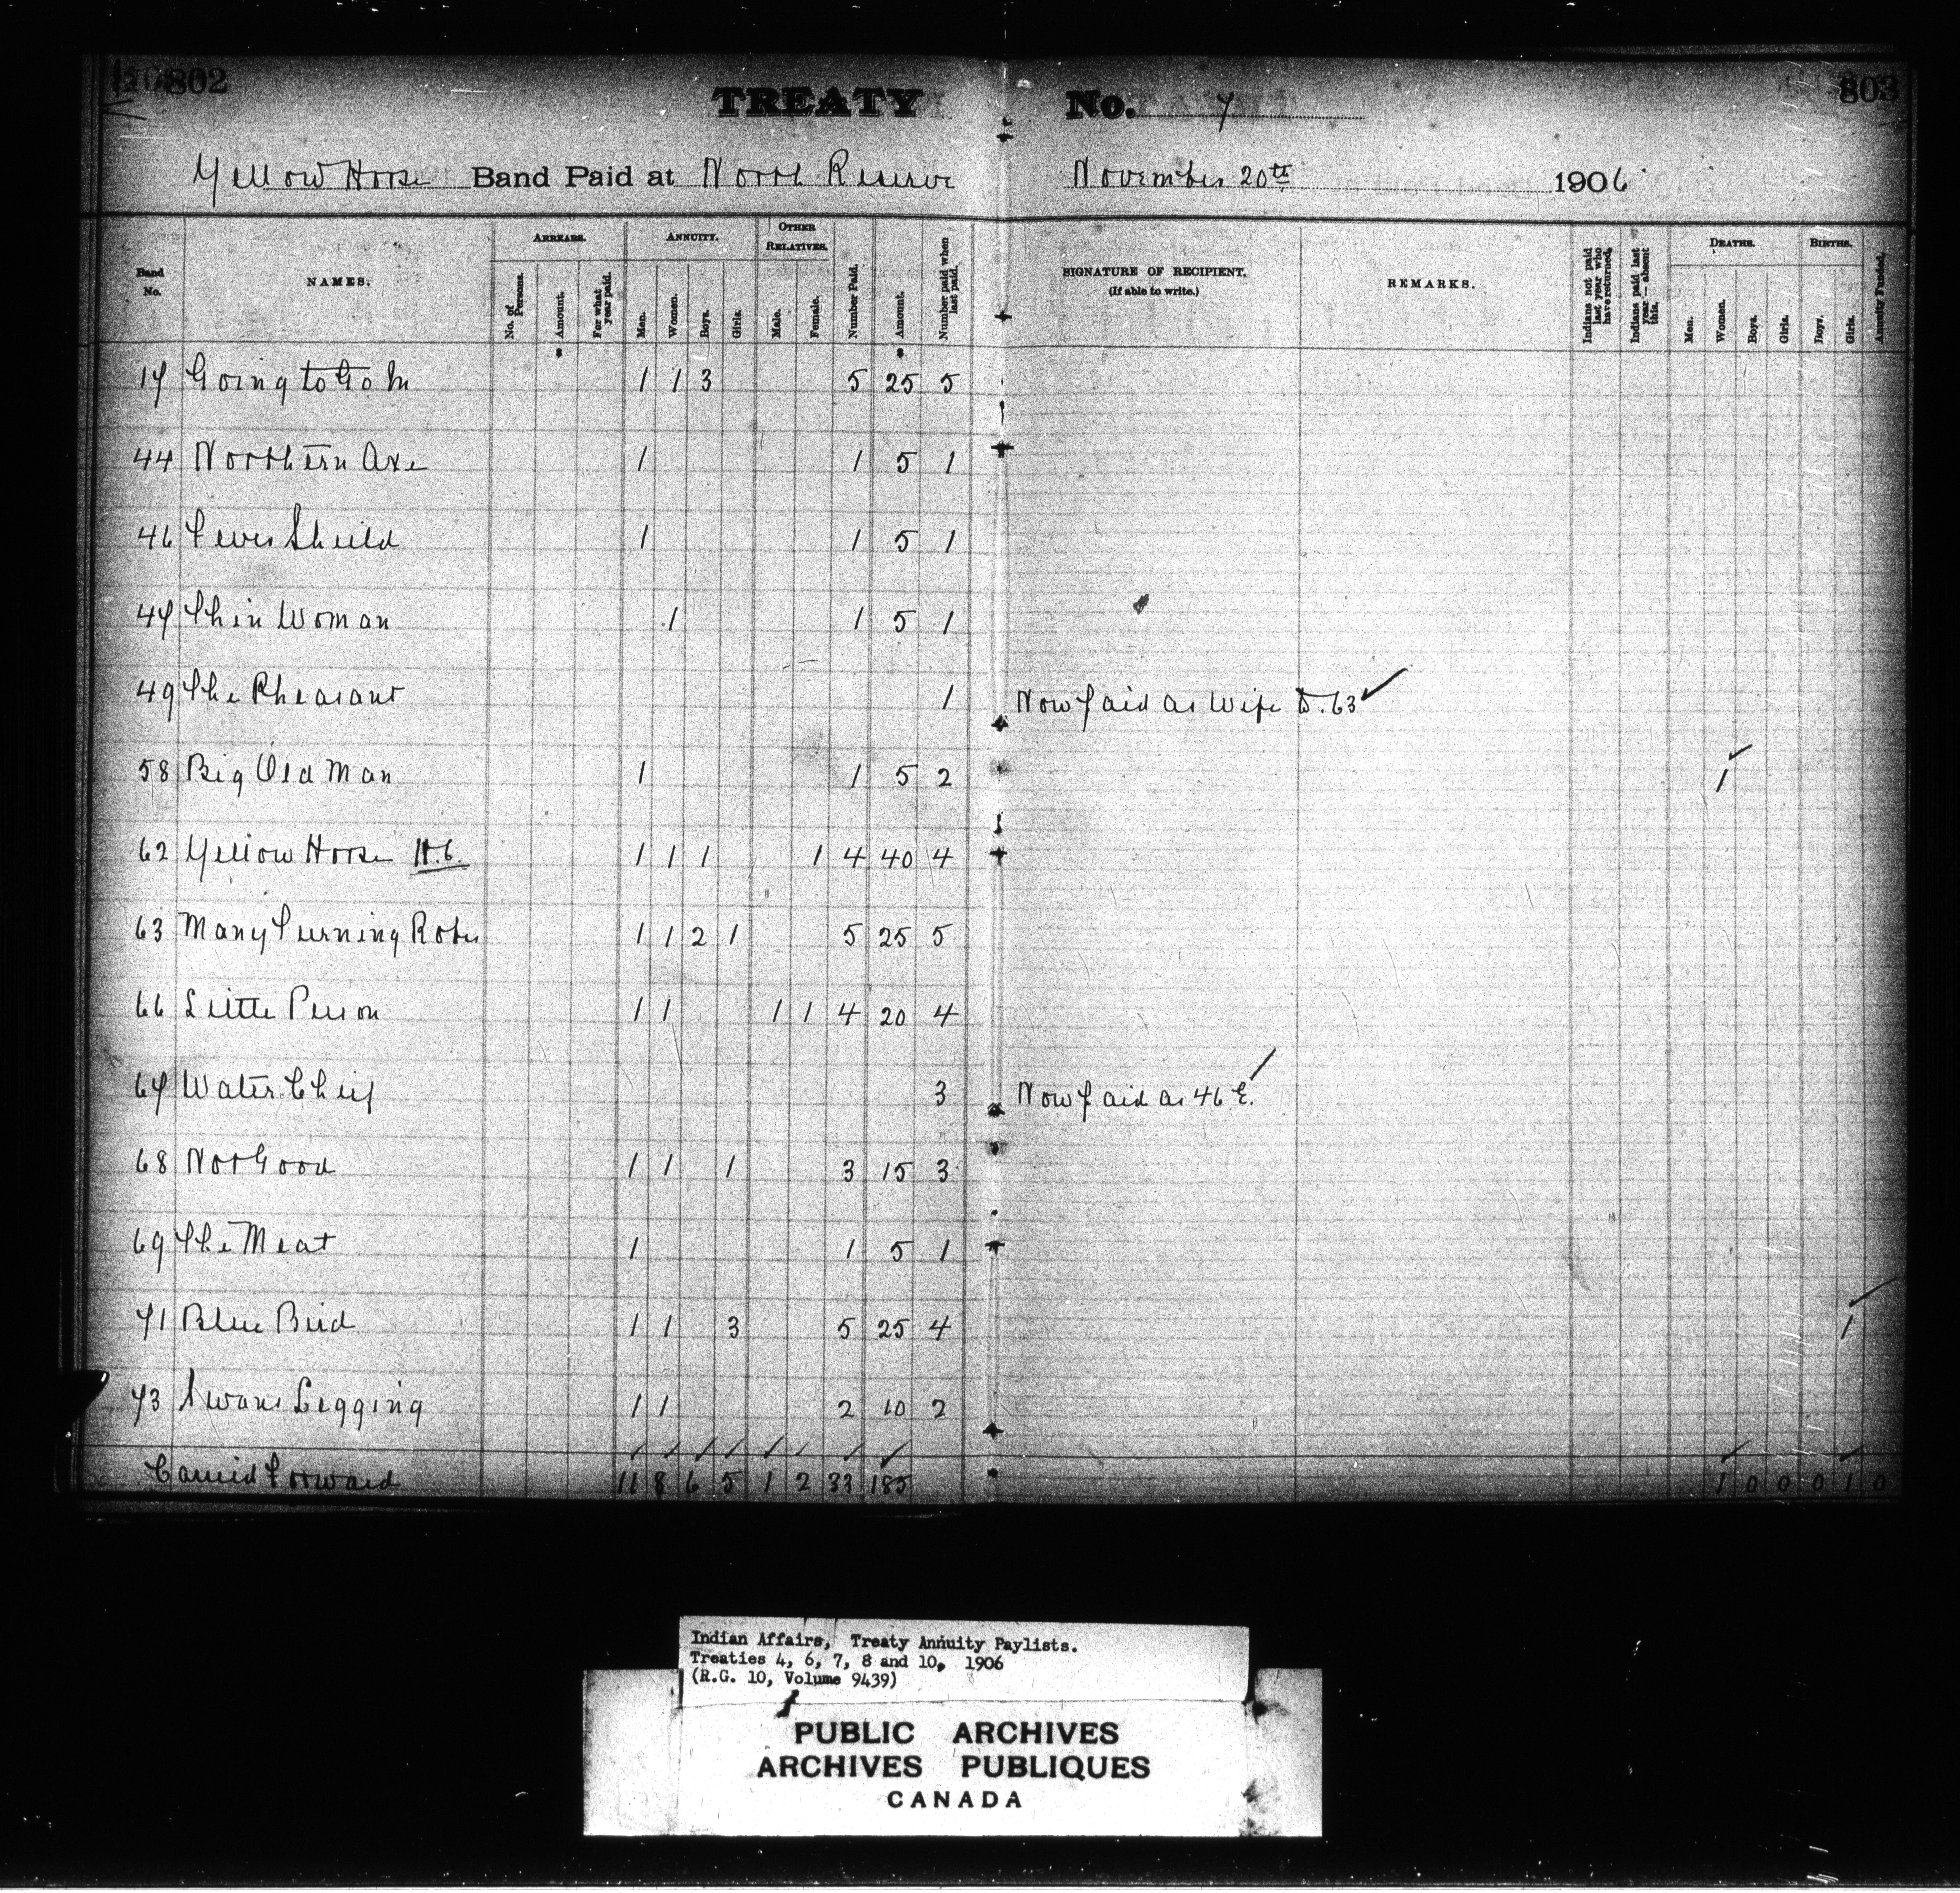 802
803
TREATY No. 7
Yellow Horse Band Paid at North Reserve November 20th 1906
Band No. NAMES. ARREARS. ANNUITY. OTHER RELATIVES. Number Paid. Amount. Number paid when last paid. SIGNATURE OF RECIPIENT. (If able to write.) REMARKS. Indians not paid last year who have returned. Indians paid last year—absent this. DEATHS. BIRTHS. Annuity Funded.
No. of Persons. Amount. For what year paid. Men. Women. Boys. Girls. Male. Female. Men. Women. Boys. Girls. Boys. Girls.
17 Going to Go In 1 1 3 5 25 5
44 Northern Axe 1 1 5 1
46 Shield 1 1 5 1
47 Thin Woman 1 1 5 1
49 The Pheasant 1 Now paid as Wife to 63
58 Big Old Man 1 1 5 2 1
62 Yellow Horse 1 1 1 1 4 40 4
63 Many Turning Robes 1 1 2 1 5 25 5
66 Little Person 1 1 1 1 4 20 4
67 Water Chief 3 Now paid as 46 E.
68 Not Good 1 1 1 3 15 3
69 The Meat 1 1 5 1
71 Blue Bird 1 1 3 5 25 4 1
73 Swans Legging 1 1 2 10 2
Carried Forward 11 8 6 5 1 2 33 185 1 0 0 0 1 0
Indian Affairs, Treaty Annuity Paylists.
Treaties 4, 6, 7, 8 and 10, 1906
(R.G. 10, Volume 9439)
PUBLIC ARCHIVES
ARCHIVES PUBLIQUES
CANADA